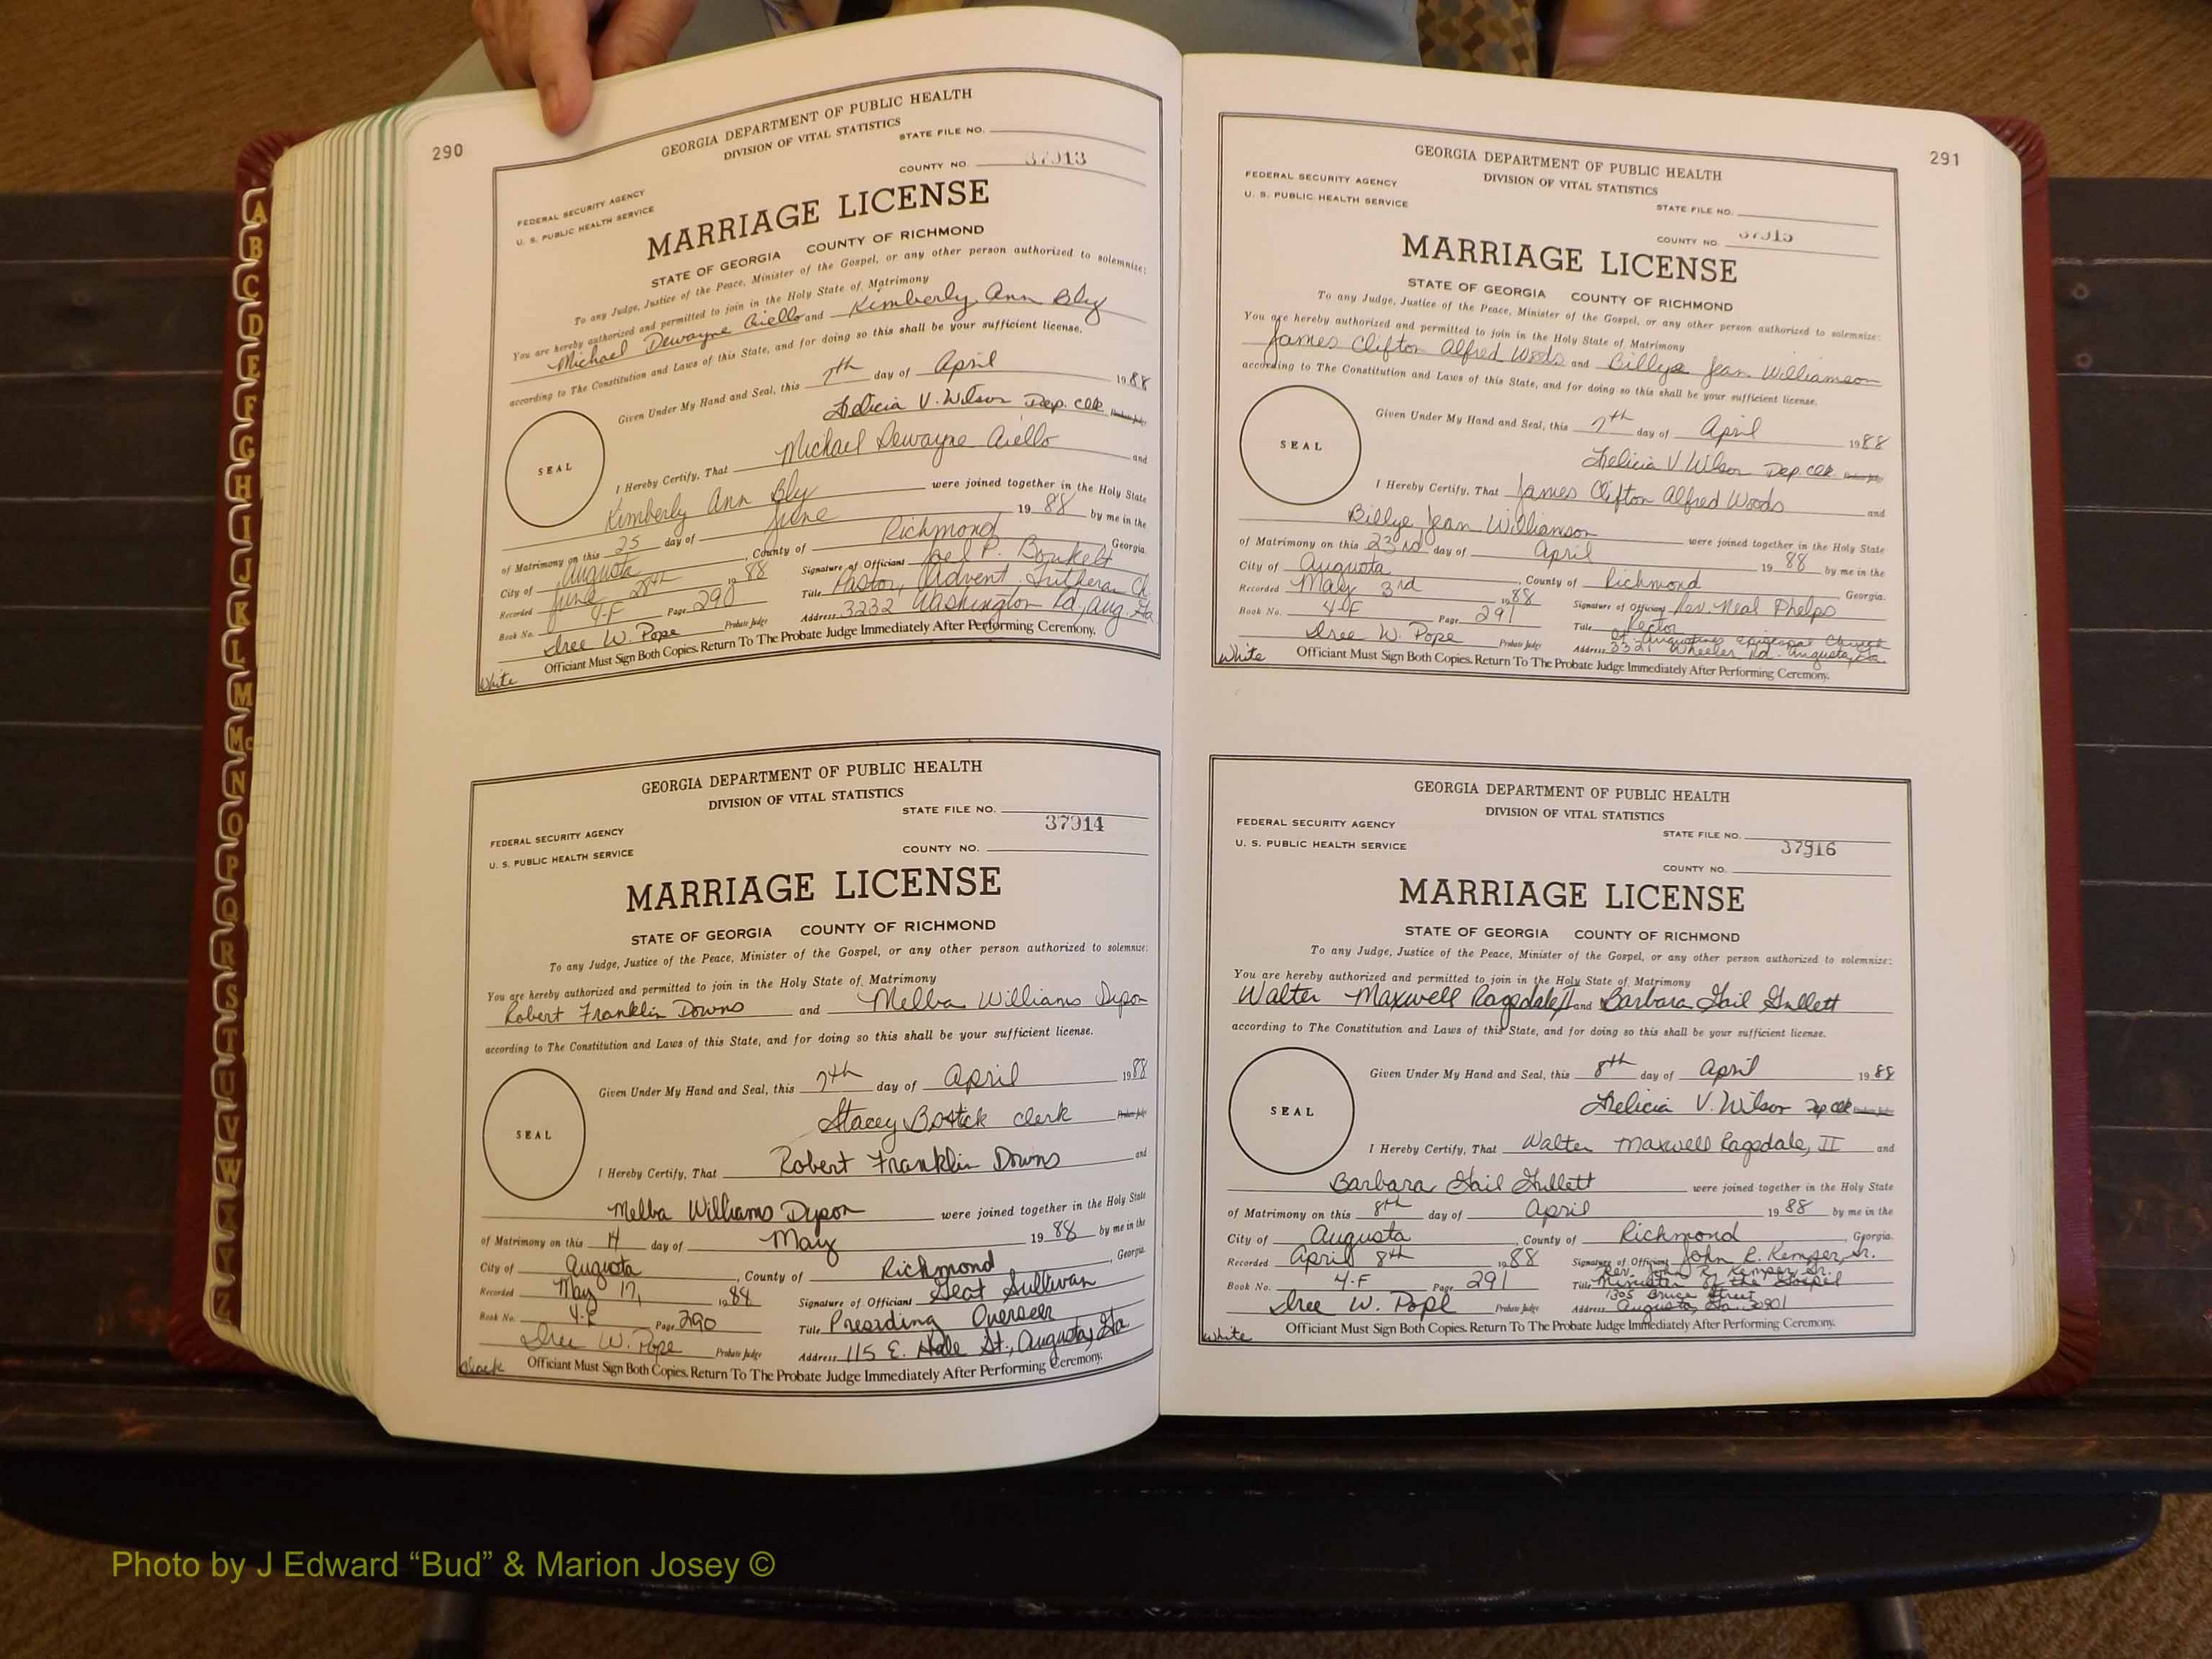 290
GEORGIA DEPARTMENT OF PUBLIC HEALTH
DIVISION OF VITAL STATISTICS
STATE FILE NO.
COUNTY NO. 37913
FEDERAL SECURITY AGENCY
U. S. PUBLIC HEALTH SERVICE
MARRIAGE LICENSE
STATE OF GEORGIA COUNTY OF RICHMOND
To any Judge, Justice of the Peace, Minister of the Gospel, or any other person authorized to solemnize:
You are hereby authorized and permitted to join in the Holy State of Matrimony
Michael Dewayne Aiello and Kimberly Ann Bly
according to The Constitution and Laws of this State, and for doing so this shall be your sufficient license.
Given Under My Hand and Seal, this 7th day of April 1988
Felicia V. Wilson Dep. Clk Probate Judge
SEAL
I Hereby Certify, That Michael Dewayne Aiello and
Kimberly Ann Bly were joined together in the Holy State
of Matrimony on this 25 day of June 19 88 by me in the
City of Augusta, County of Richmond, Georgia.
Recorded June 28th 19 88 Signature of Officiant P.
Book No. 4-F Page 290 Title Pastor, Advent Lutheran Ch.
Isree W. Pope Probate Judge Address 3232 Washington Rd, Aug. Ga
Officiant Must Sign Both Copies. Return To The Probate Judge Immediately After Performing Ceremony.
White
GEORGIA DEPARTMENT OF PUBLIC HEALTH
DIVISION OF VITAL STATISTICS
STATE FILE NO.
37914
FEDERAL SECURITY AGENCY
U. S. PUBLIC HEALTH SERVICE
COUNTY NO.
MARRIAGE LICENSE
STATE OF GEORGIA COUNTY OF RICHMOND
To any Judge, Justice of the Peace, Minister of the Gospel, or any other person authorized to solemnize:
You are hereby authorized and permitted to join in the Holy State of Matrimony
Robert Franklin Downs and Melba Williams Dyson
according to The Constitution and Laws of this State, and for doing so this shall be your sufficient license.
Given Under My Hand and Seal, this 7th day of April 1988
Stacey Bostick Clerk Probate Judge
SEAL
I Hereby Certify, That Robert Franklin Downs and
Melba Williams Dyson were joined together in the Holy State
of Matrimony on this 14 day of May 19 88 by me in the
City of Augusta, County of Richmond, Georgia.
Recorded May 17, 1988 Signature of Officiant Sullivan
Book No. 4-F Page 290 Title Presiding Overseer
Isree W. Pope Probate Judge Address 115 E. Hale St., Augusta, Ga
Officiant Must Sign Both Copies. Return To The Probate Judge Immediately After Performing Ceremony.
291
GEORGIA DEPARTMENT OF PUBLIC HEALTH
DIVISION OF VITAL STATISTICS
FEDERAL SECURITY AGENCY
U. S. PUBLIC HEALTH SERVICE
STATE FILE NO.
COUNTY NO. 37915
MARRIAGE LICENSE
STATE OF GEORGIA COUNTY OF RICHMOND
To any Judge, Justice of the Peace, Minister of the Gospel, or any other person authorized to solemnize:
You are hereby authorized and permitted to join in the Holy State of Matrimony
James Clifton Alfred Woods and Billye Jean Williamson
according to The Constitution and Laws of this State, and for doing so this shall be your sufficient license.
Given Under My Hand and Seal, this 7th day of April 1988
Felicia V Wilson Dep. Clk Probate Judge
SEAL
I Hereby Certify, That James Clifton Alfred Woods and
Billye Jean Williamson were joined together in the Holy State
of Matrimony on this 23rd day of April 19 88 by me in the
City of Augusta, County of Richmond, Georgia.
Recorded May 3rd 1988 Signature of Officiant Rev. Neal Phelps
Book No. 4-F Page 291 Title Rector
St. Augustines Episcopal Church
Isree W. Pope Probate Judge Address 3321 Wheeler Rd. Augusta, Ga.
Officiant Must Sign Both Copies. Return To The Probate Judge Immediately After Performing Ceremony.
White
GEORGIA DEPARTMENT OF PUBLIC HEALTH
DIVISION OF VITAL STATISTICS
FEDERAL SECURITY AGENCY
U. S. PUBLIC HEALTH SERVICE
STATE FILE NO.
37916
COUNTY NO.
MARRIAGE LICENSE
STATE OF GEORGIA COUNTY OF RICHMOND
To any Judge, Justice of the Peace, Minister of the Gospel, or any other person authorized to solemnize:
You are hereby authorized and permitted to join in the Holy State of Matrimony
Walter Maxwell Ragsdale II and Barbara Gail Gullett
according to The Constitution and Laws of this State, and for doing so this shall be your sufficient license.
Given Under My Hand and Seal, this 8th day of April 1988
Felicia V. Wilson Dep Clk Probate Judge
SEAL
I Hereby Certify, That Walter Maxwell Ragsdale, II and
Barbara Gail Gullett were joined together in the Holy State
of Matrimony on this 8th day of April 19 88 by me in the
City of Augusta, County of Richmond, Georgia.
Recorded April 8th 1988 Signature of Officiant John R. Kemper, Sr.
Rev. John R. Kemper, Sr.
Book No. 4-F Page 291 Title Minister of the Gospel
1305 Bruce Street
Isree W. Pope Probate Judge Address Augusta, Ga. 30901
Officiant Must Sign Both Copies. Return To The Probate Judge Immediately After Performing Ceremony.
White
A
B
C
D
E
F
G
H
I
J
K
L
M
Mc
N
O
P
Q
R
S
T
U
V
W
X
Y
Z
Photo by J Edward “Bud” & Marion Josey ©